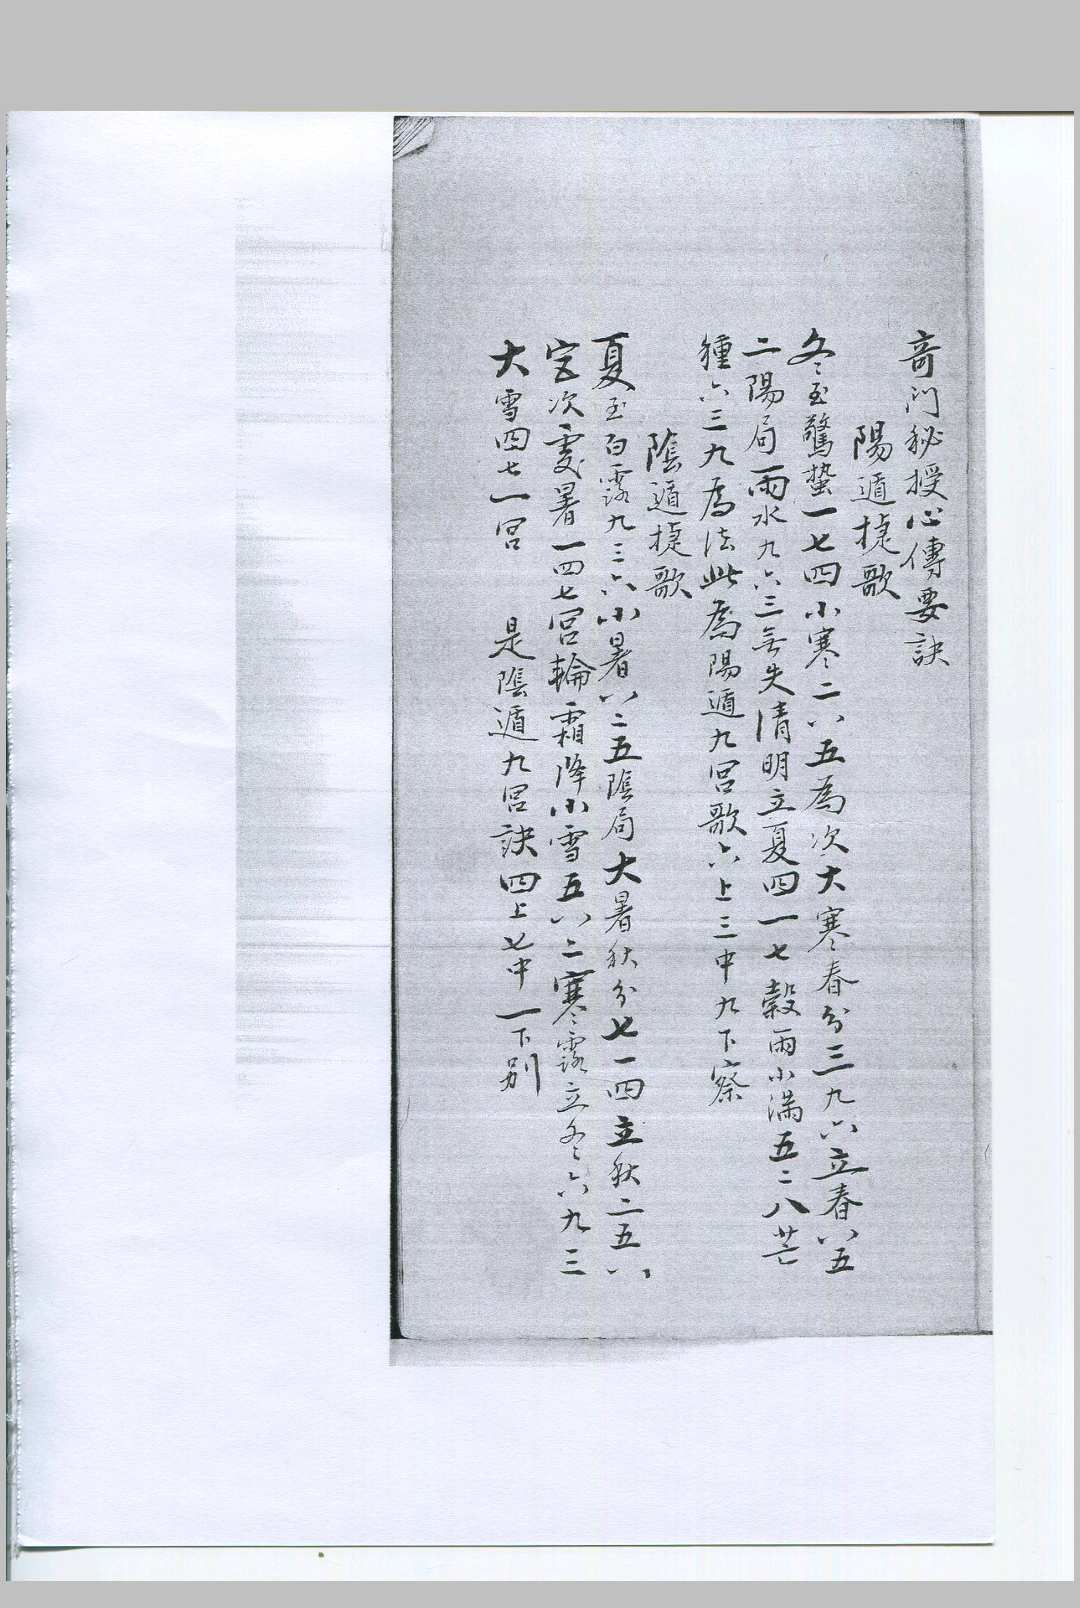 奇門秘授心傳要訣
陽遁捷歌
冬至驚蟄一七四小寒二八五為次大寒春分三九六立春八五
二陽局雨水九六三無失清明立夏四一七穀雨小滿五二八芒
種六三九為法此為陽遁九宮歌六上三中九下察
陰遁捷歌
夏至白露九三六小暑八二五陰局大暑秋分七一四立秋二五八
定次處暑一四七宮輪霜降小雪五八二寒露立冬六九三
大雪四七一宮 是陰遁九宮訣四上七中一下別